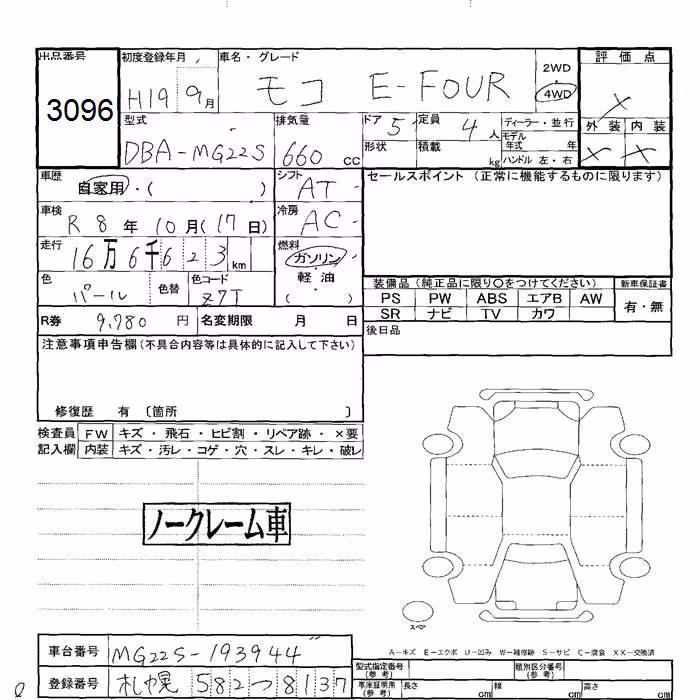 出品番号 初度登録年月 車名・グレード 2WD 評価点
3096 H19 9月 モコ E-FOUR 4WD X
型式 排気量 ドア 5 定員 4人 ディーラー・並行 外装 内装
DBA-MG22S 660cc 形状 積載 kg モデル年式 年 X X
ハンドル 左・右
車歴 自家用・( ) シフト AT セールスポイント (正常に機能するものに限ります)
車検 R8年10月(17日) 冷房 AC
走行 16万6千623km 燃料 ガソリン
軽油
( )
色 パール 色替 色コード Z7T 装備品(純正品に限り〇をつけてください) 新車保証書
PS PW ABS エアB AW 有・無
SR ナビ TV カワ
R券 9,780円 名変期限 月 日 後日品
注意事項申告欄(不具合内容等は具体的に記入して下さい)
修復歴 有 〔箇所 〕
検査員 FW キズ・飛石・ヒビ割・リペア跡・×要
記入欄 内装 キズ・汚レ・コゲ・穴・スレ・キレ・破レ
ノークレーム車
スペア
A-キズ E-エクボ U-凹み W-補修跡 S-サビ C-腐食 XX-交換済
車台番号 MG22S-193944
登録番号 札幌 582 つ 8137
型式指定番号(参考) 類別区分番号(参考)
車庫証明用(参考) 長さ cm 幅 cm 高さ cm